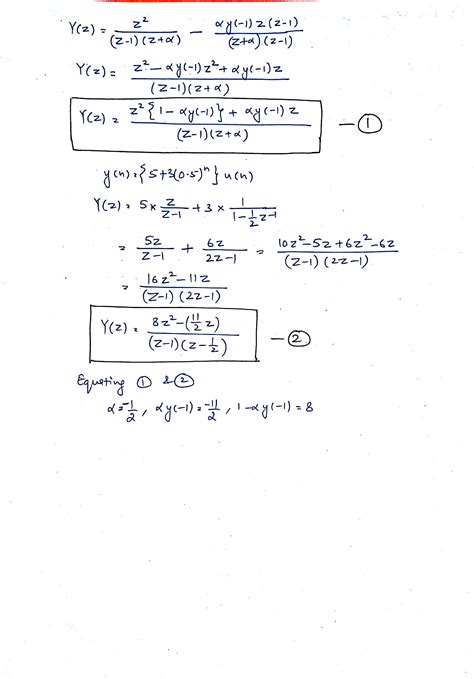 Y(z) = z²/((z-1)(z+α)) - αy(-1)z(z-1)/((z+α)(z-1))
Y(z) = (z² - αy(-1)z² + αy(-1)z)/((z-1)(z+α))
Y(z) = (z²{1-αy(-1)} + αy(-1)z)/((z-1)(z+α)) — ①
y(n) = {5+3(0.5)ⁿ}u(n)
Y(z) = 5 × z/(z-1) + 3 × 1/(1-½z⁻¹)
= 5z/(z-1) + 6z/(2z-1) = (10z²-5z+6z²-6z)/((z-1)(2z-1))
= (16z²-11z)/((z-1)(2z-1))
Y(z) = (8z²-(11/2 z))/((z-1)(z-½)) — ②
Equating ① & ②
α=-1/2, αy(-1)=-11/2, 1-αy(-1)=8